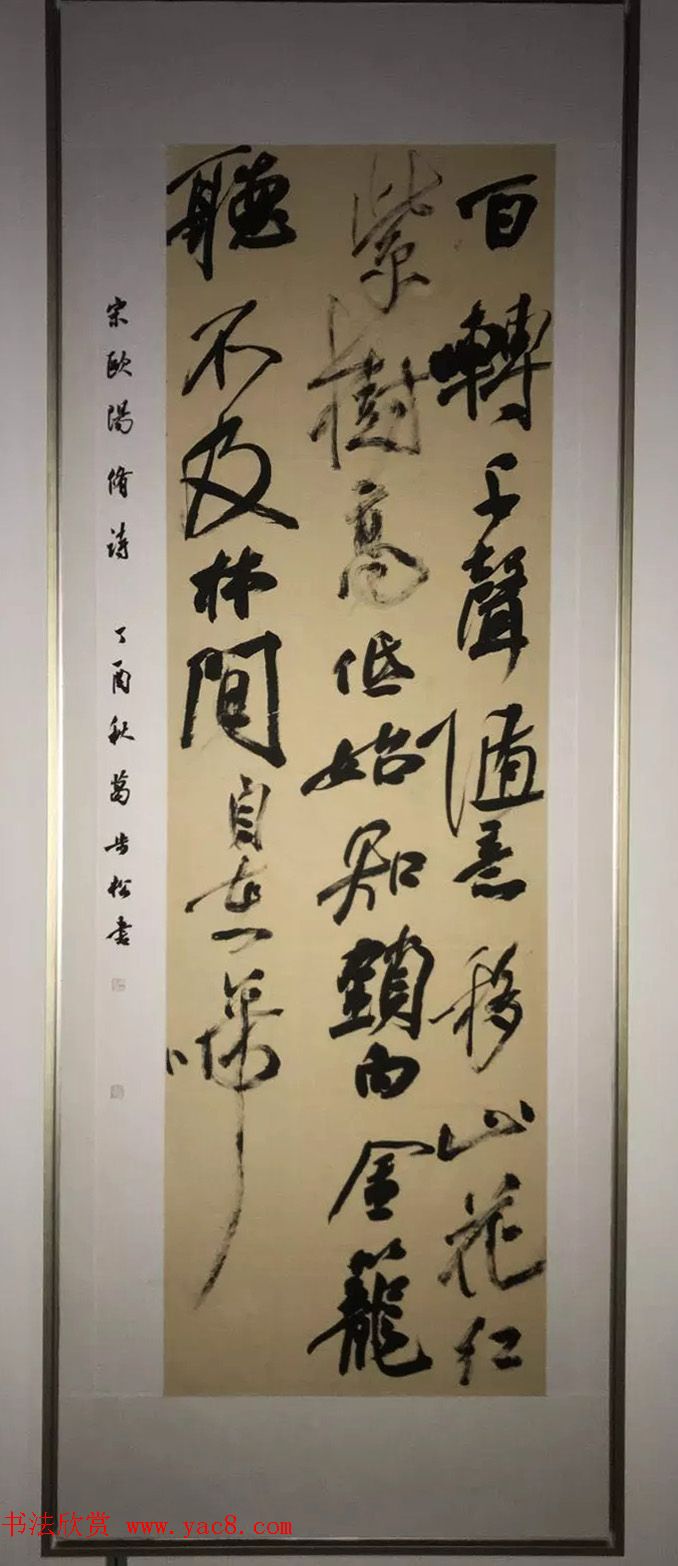 百轉千聲隨意移山花紅
紫樹高低始知鎖向金籠
聽不及林間自在啼
宋歐陽脩詩 丁酉秋葛松書
书法欣赏 www.yac8.com